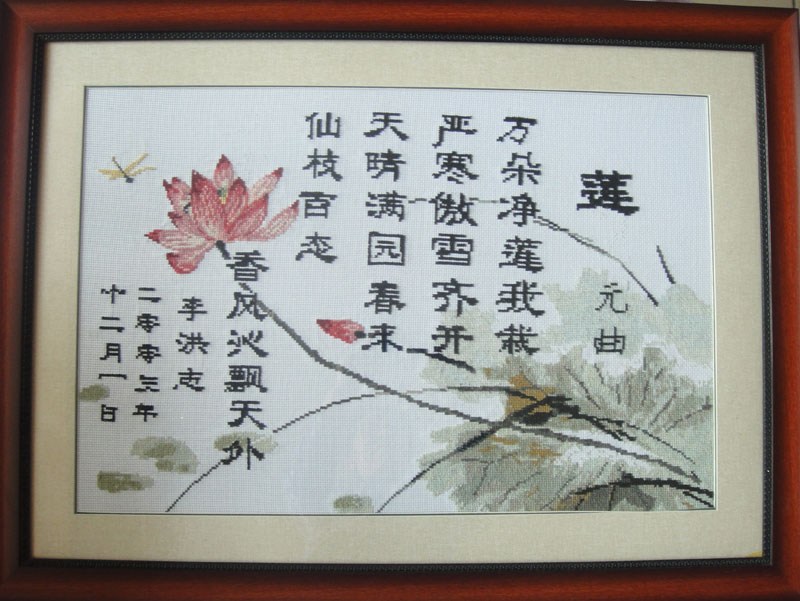 莲
元曲
万朵净莲我栽
严寒傲雪齐开
天晴满园春来
仙枝百态
香风沁飘天外
李洪志
二零零三年
十二月一日